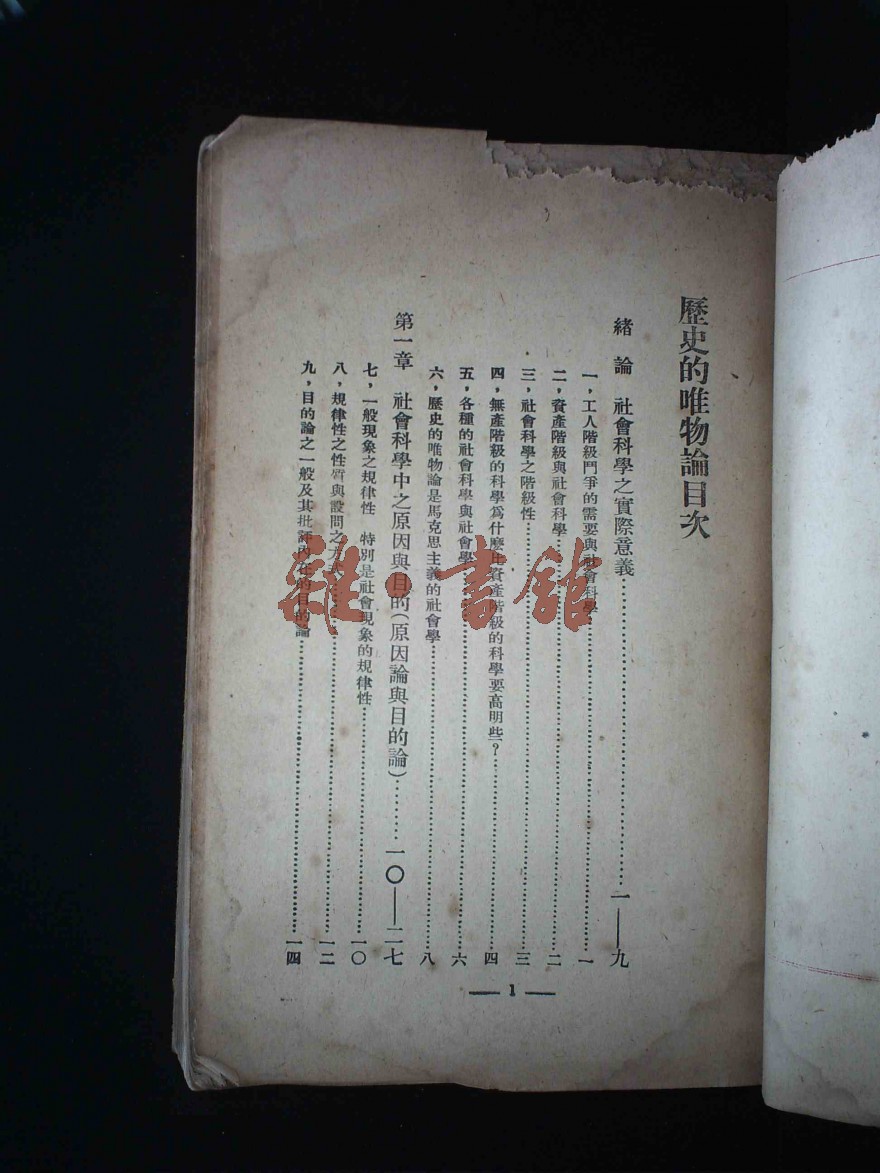 歷史的唯物論目次
緒 論 社會科學之實際意義……一——九
一，工人階級鬥爭的需要與社會科學……一
二，資產階級與社會科學……二
三，社會科學之階級性……三
四，無產階級的科學爲什麼比資產階級的科學要高明些？……四
五，各種的社會科學與社會學……六
六，歷史的唯物論是馬克思主義的社會學……八
第一章 社會科學中之原因與目的（原因論與目的論）……一〇——二七
七，一般現象之規律性 特別是社會現象的規律性……一〇
八，規律性之性質與設問之方式……一二
九，目的論之一般及其批評內在的目的論……一四
— 1 —
雜·書館